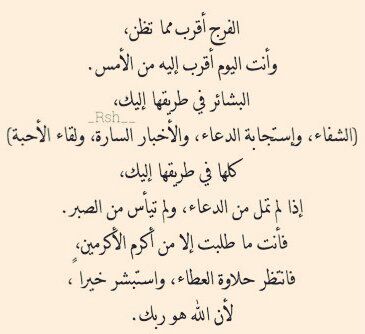 الفرج أقرب مما تظن،
وأنت اليوم أقرب إليه من الأمس.
البشائر في طريقها إليك،
_Rsh__
(الشفاء، وإستجابة الدعاء، والأخبار السارة، ولقاء الأحبة)
كلها في طريقها إليك،
إذا لم تمل من الدعاء، ولم تيأس من الصبر.
فأنت ما طلبت إلا من أكرم الأكرمين،
فانتظر حلاوة العطاء، واستبشر خيرا ،
لأن الله هو ربك.